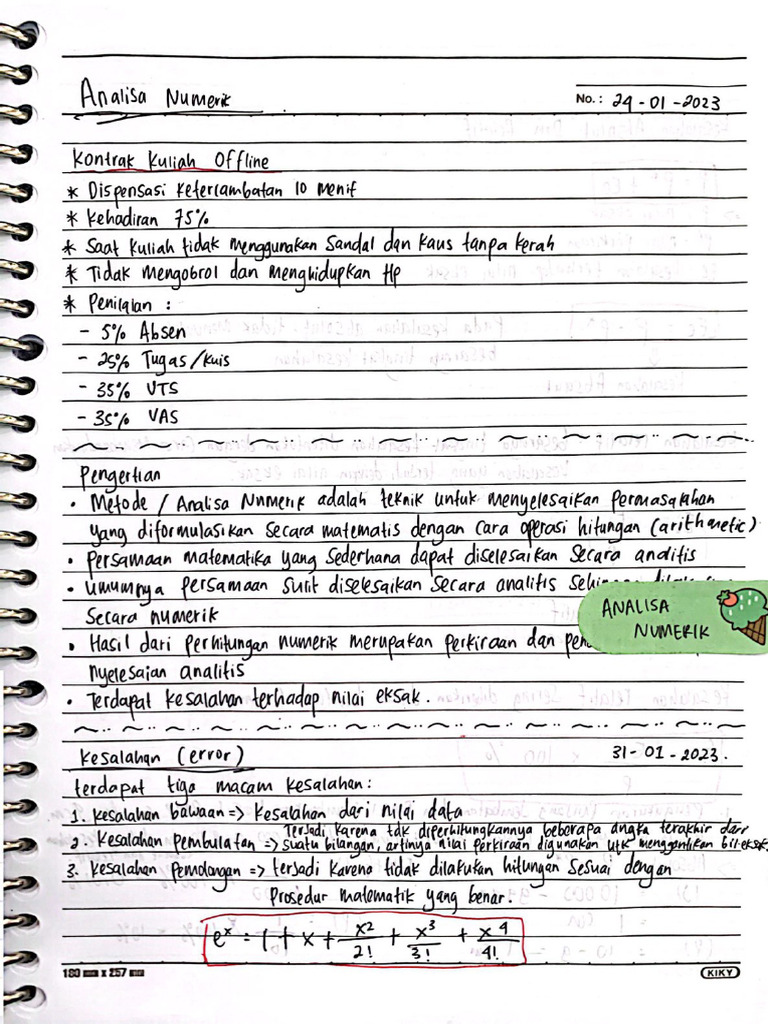 Analisa Numerik
No. : 24 - 01 - 2023
Kontrak Kuliah Offline
* Dispensasi keterlambatan 10 menit
* Kehadiran 75%
* Saat kuliah tidak menggunakan Sandal dan Kaus tanpa kerah
* Tidak mengobrol dan menghidupkan Hp
* Penilaian :
- 5% Absen
- 25% Tugas/kuis
- 35% UTS
- 35% UAS
Pengertian
• Metode / Analisa Numerik adalah teknik untuk menyelesaikan permasalahan
yang diformulasikan secara matematis dengan cara operasi hitungan (arithmetic)
• Persamaan matematika yang sederhana dapat diselesaikan secara analitis
• Umumnya persamaan sulit diselesaikan secara analitis
secara numerik
ANALISA
NUMERIK
• Hasil dari perhitungan numerik merupakan perkiraan dan
nyelesaian analitis
• Terdapat kesalahan terhadap nilai eksak.
Kesalahan (error) 31 - 01 - 2023.
terdapat tiga macam kesalahan:
1. kesalahan bawaan => kesalahan dari nilai data
2. Kesalahan pembulatan => Terjadi karena tdk diperhitungkannya beberapa angka terakhir dari
suatu bilangan, artinya nilai perkiraan digunakan utk menggantikan bil.eksak
3. kesalahan pemotongan => terjadi karena tidak dilakukan hitungan sesuai dengan
prosedur matematik yang benar.
e^x = 1 + x + x^2/2! + x^3/3! + x^4/4!
180 mm x 257 mm
KIKY